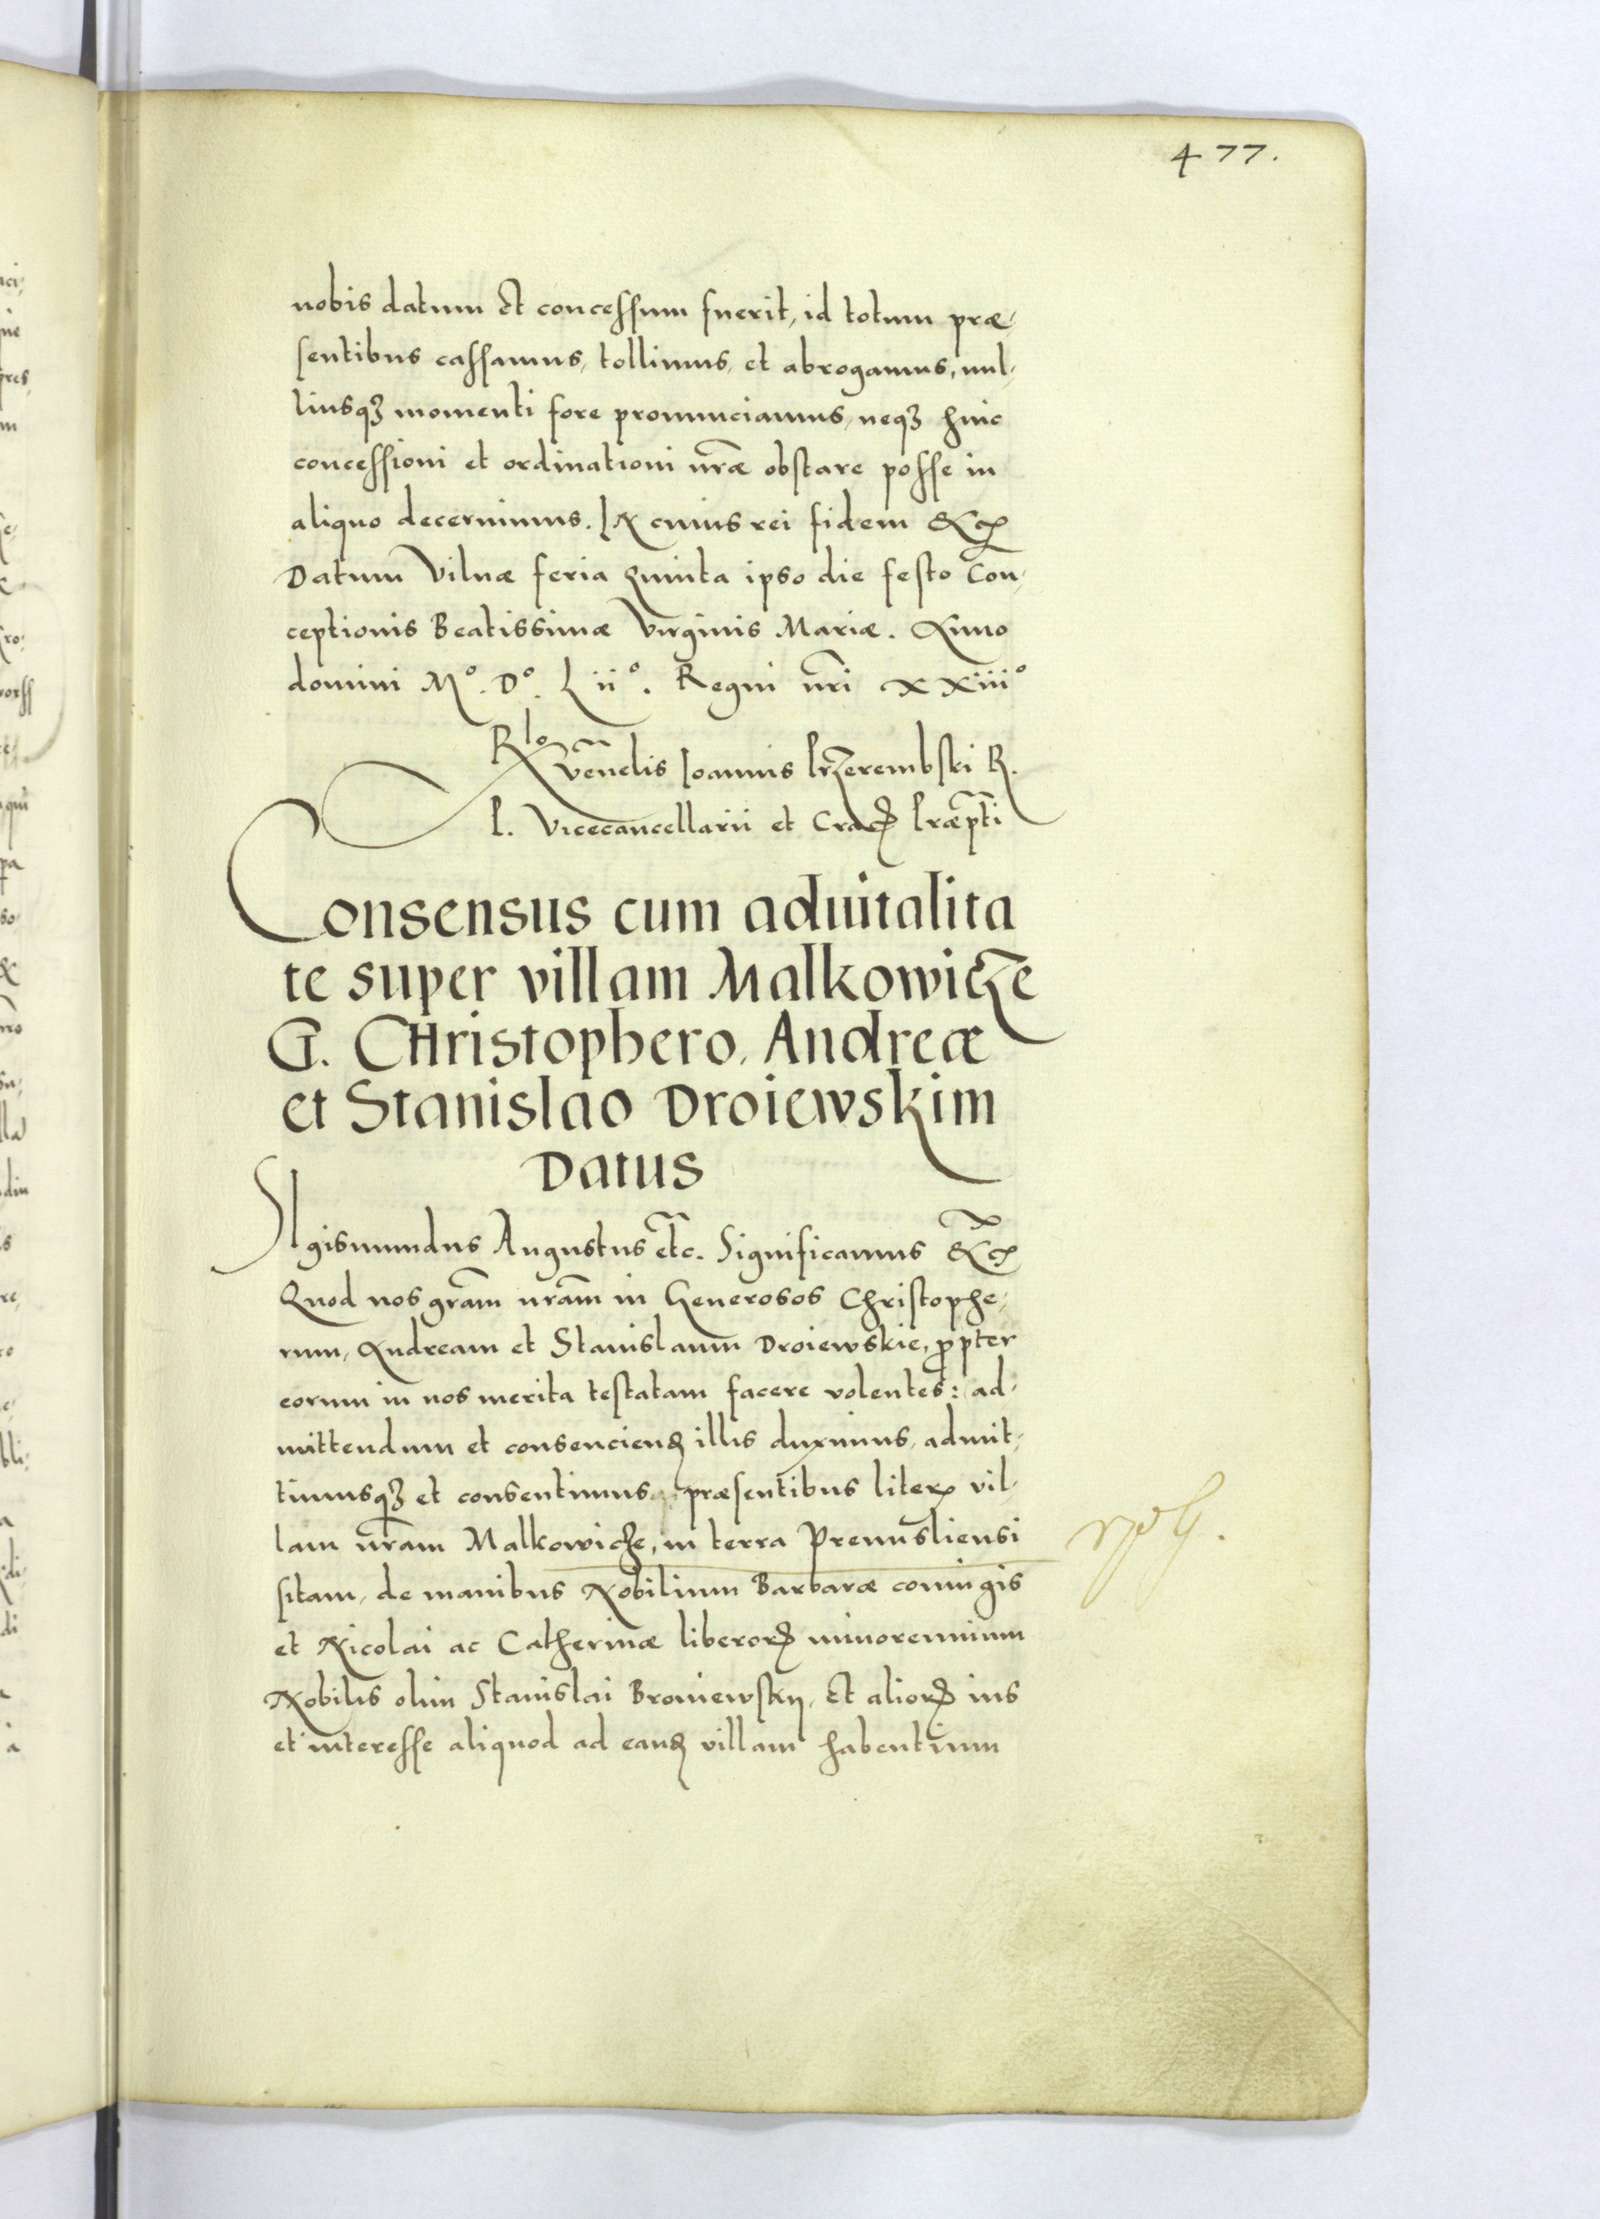 477.
nobis datum et concessum fuerit, id totum præ-
sentibus cassamus, tollimus, et abrogamus, nul-
liusqꝫ momenti fore pronunciamus, neqꝫ huic
concessioni et ordinationi nr̃æ obstare posse in
aliquo decernimus. IN cuius rei fidem &c
Datum Vilnæ feria Quinta ipso die festo Con-
ceptionis Beatissimæ Virginis Mariæ. Anno
domini Mº. Dº. Liiº. Regni nr̃i XXiiiº
Rlo
Ven̄elis Ioannis Przerembski R.
P. Vicecancellarii et Cracꝫ Præpti
Consensus cum aduitalita
te super villam Malkowicze
G. CHristophero, Andreæ
et Stanislao Droiewskim
Datus
SIgismundus Augustus etc. Significamus &c
Quod nos gr̃am nr̃am in Generosos Christophe-
rum, Andream et Stanislaum Droiewskie, propter
eorum in nos merita testatam facere volentes: ad-
mittendum et consenciendꝫ illis duximus, admit-
timusqꝫ et consentimus præsentibus literꝫ vil-
lam nr̃am Malkowicze, in terra Premisliensi
sitam, de manibus Nobilium Barbaræ coniugis
et Nicolai ac Catherinæ liberorꝫ minorennium
Nobilis olim Stanislai Broniewskij, Et aliorꝫ ius
et interesse aliquod ad eandꝫ villam habentium